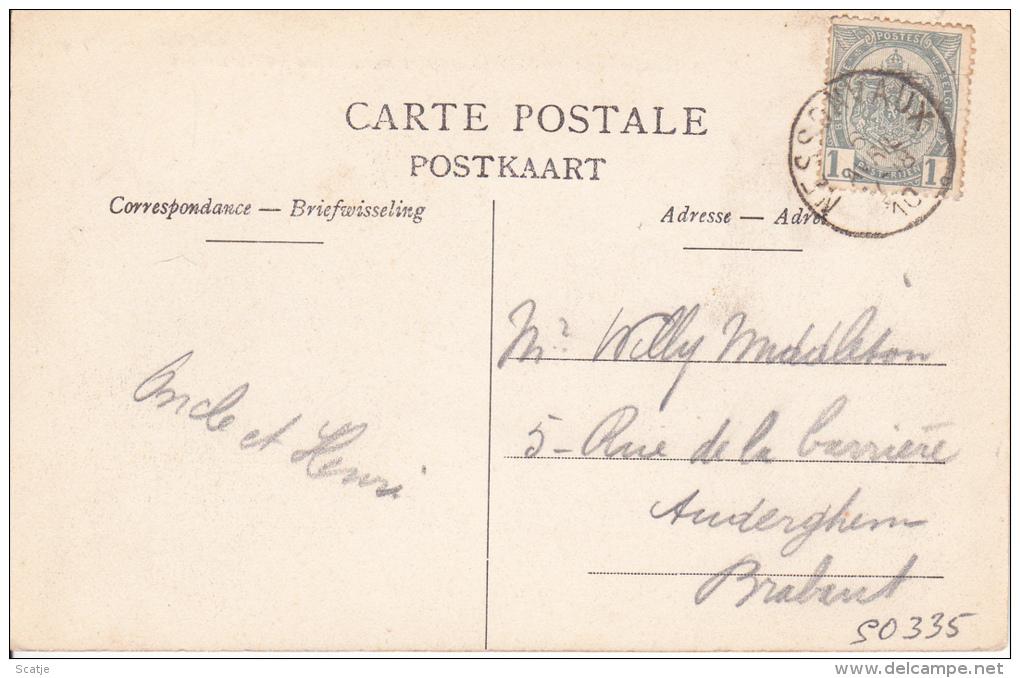 POSTES
CARTE POSTALE
POSTKAART
NESSONVAUX
1 1
10
Correspondance — Briefwisseling
Adresse — Adres
Mr Willy Middleton
5 - Rue de la barrière
Auderghem
Brabant
Oncle et Henri
S0335
Scatje
delcampe.net